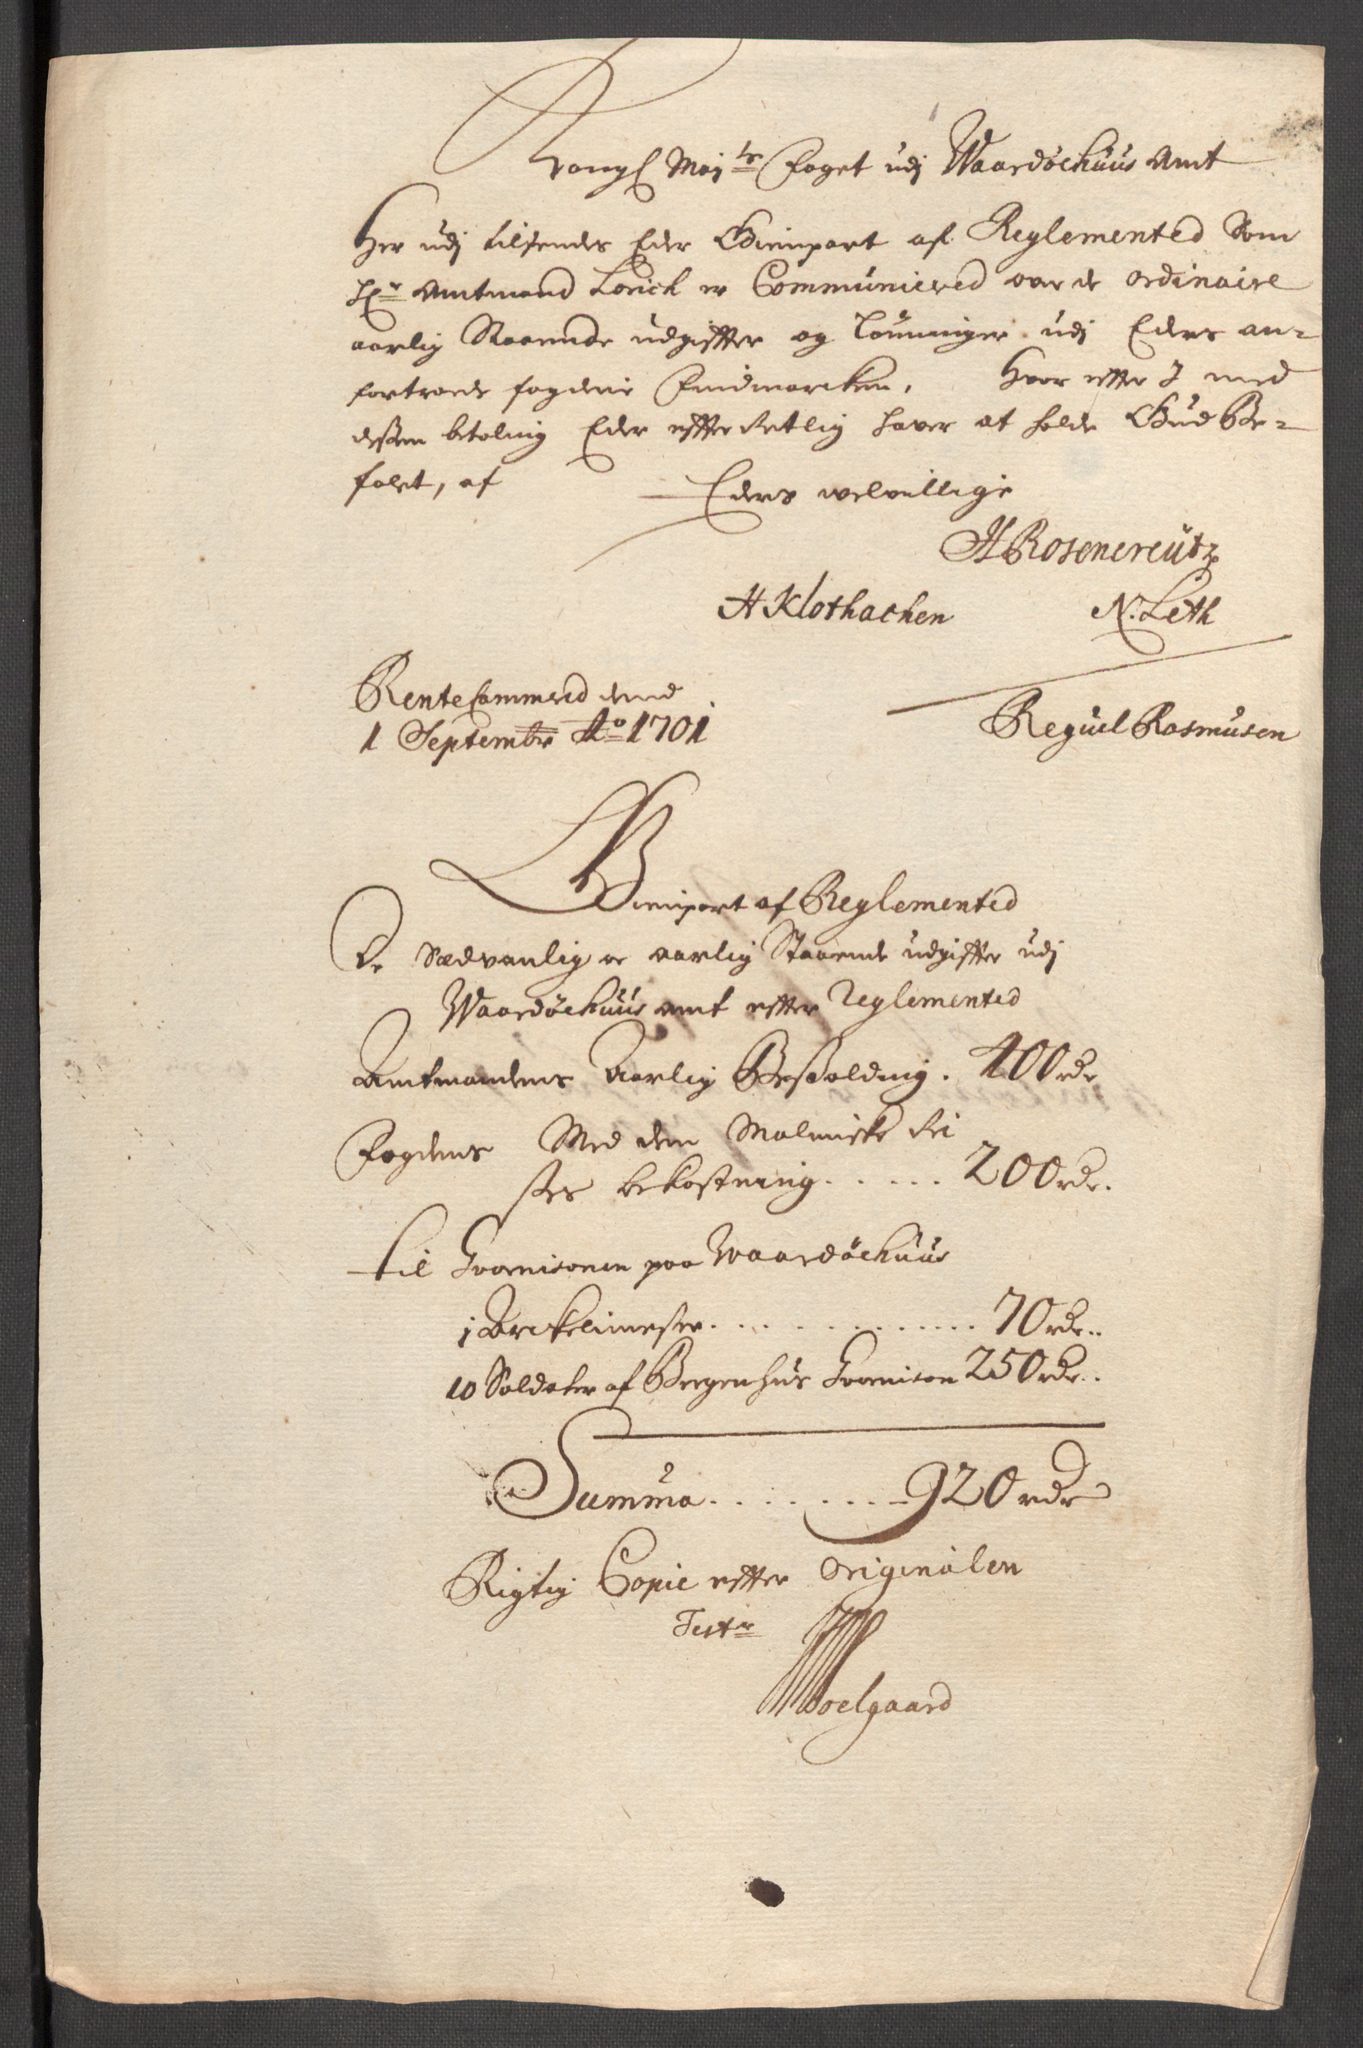 Kongl Maj:ts Foget udj Waardöehuus Amt
Her udj tilsendes Eder Gienpart af Reglemented Som
Hr Amtmand Lorich er Communicered over de ordinaire
aarlig Staaende udgiffter og Lønninger udj Eders an-
fortroede fogderie Findmarcken, Hvor effter I med
dessen betaling Eder effterretlig haver at holde Gud Be-
falet, af
Eders velvillige
H Rosencreütz
A Klothachen N. Leth
RenteCammered dend
1 Septembr Ao 1701
Reguel Rasmusen
Gienpart af Reglemented
De Sædvanlig oc aarlig Staaende udgiffter udj
Waardöehuus amt effter Reglemented
Amtmandens Aarlig Besolding. 400 rdr
Fogdens Med den Malmiske Rei
ses bekostning..... 200 rdr.
Til Guarnisonen paa Waardöehuus
1 Arckelimester............. 70 rdr..
10 Soldater af Bergenhus Guarnison 250 rdr..
Summa........ 920 rdr
Rigtig Copie effter Originalen
Test:
Moelgaard